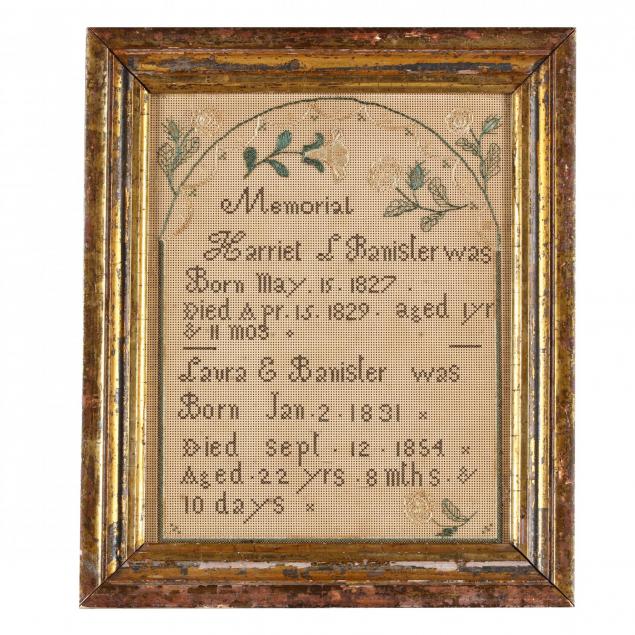 Memorial
Harriet L Banister was
Born May. 15. 1827.
Died Apr. 15. 1829. aged 1yr
& 11 mos.
Laura E Banister was
Born Jan. 2. 1831
Died Sept. 12. 1854
Aged. 22 yrs. 8 mths. &
10 days